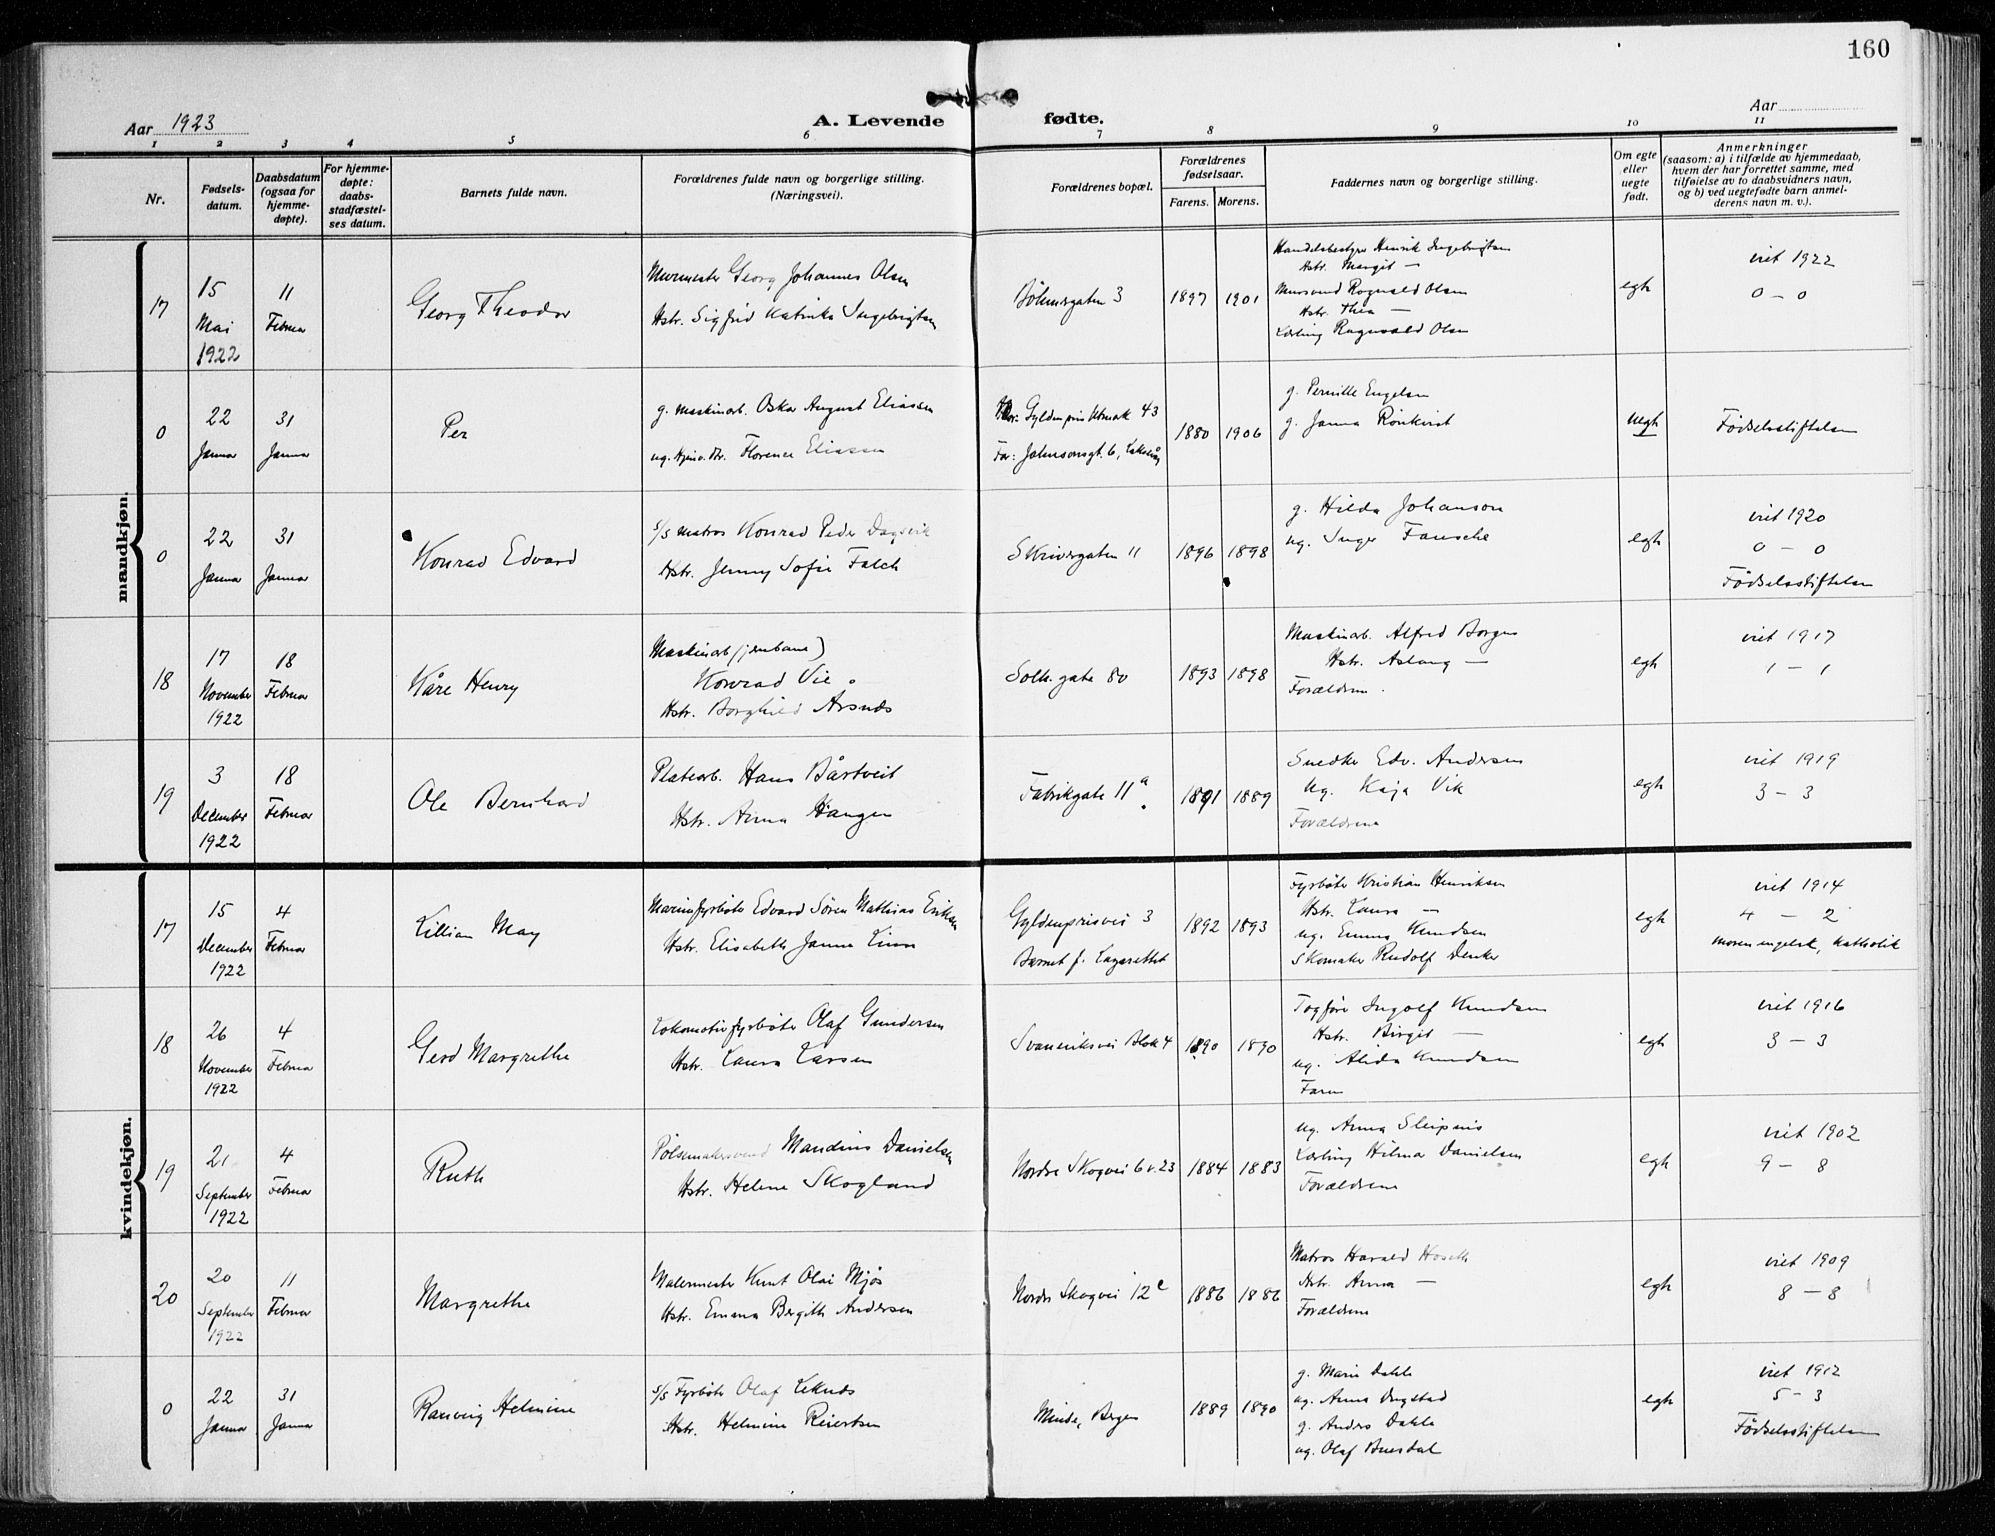 160
Aar 1923
A. Levende fødte.
Aar
1 2 3 4 5 6 7 8 9 10 11
Nr.
Fødsels-
datum.
Daabsdatum
(ogsaa for
hjemme-
døpte).
For hjemme-
døpte:
daabs-
stadfæstel-
ses datum.
Barnets fulde navn.
Forældrenes fulde navn og borgerlige stilling.
(Næringsvei).
Forældrenes bopæl.
Forældrenes
fødselsaar.
Farens. Morens.
Faddernes navn og borgerlige stilling.
Om egte
eller
uegte
født.
Anmerkninger
(saasom: a) i tilfælde av hjemmedaab,
hvem der har forrettet samme, med
tilføielse av to daabsvidners navn,
og b) ved uegtefødte barn anmel-
derens navn m. v.).
mandkjøn.
17
15
Mai
1922
11
Februar
Georg Theodor
Murmester Georg Johannes Olsen
Hstr. Sigfrid Katrika Ingebrigtsen
Böhmsgaten 3
1897 1901
Handelsbestyrer Henrik Ingebrigtsen
Hstr. Margit —
Mursvend Rognvald Olsen
Hstr. Thea —
Lærling Ragnvald Olsen
egte
viet 1922
0 – 0
0
22
Januar
31
Januar
Per
g. maskinarb. Oskar August Eliassen
ug. Florence Eliassen
Mor: Gyldenpris Utmark 43
Far: Johnsonsgt. 6, Laksevåg
1880 1906
g. Pernille Engelsen
g. Janna Rönkvist
uegte
Fødselsstiftelsen
0
22
Januar
31
Januar
Konrad Edvard
s/s matros Konrad Peder Dagsvik
Hstr. Jenny Sofie Falch
Skriversgaten 11
1896 1898
g. Hilda Johanson
ug. Inger Fansche
egte
viet 1920
0 – 0
Fødselsstiftelsen
18
17
November
1922
18
Februar
Kåre Henry
Maskinarb (jernbane)
Konrad Vie
Hstr. Borghild Årsnes
Solh. gate 80
1893 1898
Maskinarb. Alfred Borgen
Hstr. Aslaug —
Forældrene
egte
viet 1917
1 – 1
19
3
December
1922
18
Februar
Ole Bernhard
Platearb. Hans Bårtveit
Hstr. Anna Haugen
Fabrikgate 11 a
1891 1889
Snedker Edv. Andersen
Ug. Kaja Vik
Forældrene
egte
viet 1919
3 – 3
kvindekjøn.
17
15
December
1922
4
Februar
Lillian May
Marinefyrbøter Edvard Sören Mathias Eriksen
Hstr. Elisabeth Janna Linn
Gyldenprisvei 3
Barnet f. Lazarettet
1892 1893
Fyrbøter Kristian Henriksen
Hstr. Laura —
ug. Emma Knudsen
Skomaker Rudolf Denker
egte
viet 1914
4 – 2
moren engelsk, katholik
18
26
November
1922
4
Februar
Gerd Margrethe
Lokomotivfyrbøter Olaf Gundersen
Hstr. Laura Larsen
Svaneviksvei Blok 4
1890 1890
Togfører Ingolf Knudsen
Hstr. Birgit —
ug. Alida Knudsen
Faren
egte
viet 1916
3 – 3
19
21
September
1922
4
Februar
Ruth
Pølsemakersvend Mandius Danielsen
Hstr. Helene Skogland
Nordre Skogvei 6 v. 23
1884 1883
ug. Anna Sleipnis
Lærling Hilmar Danielsen
Forældrene
egte
viet 1902
9 – 8
20
20
September
1922
11
Februar
Margrethe
Malermester Knut Olai Mjøs
Hstr. Emma Bergith Andersen
Nordre Skogvei 12 c
1886 1886
Matros Harald Hoseth
Hstr. Anna —
Forældrene
egte
viet 1909
8 – 8
0
22
Januar
31
Januar
Ranveig Helmine
s/s Fyrbøter Olaf Leknes
Hstr. Helmine Reiertsen
Minde, Bergen
1889 1890
g. Marie Dahle
ug. Anna Ingstad
g. Anders Dahle
ug. Olaf Buesdal
egte
viet 1912
5 – 3
Fødselsstiftelsen